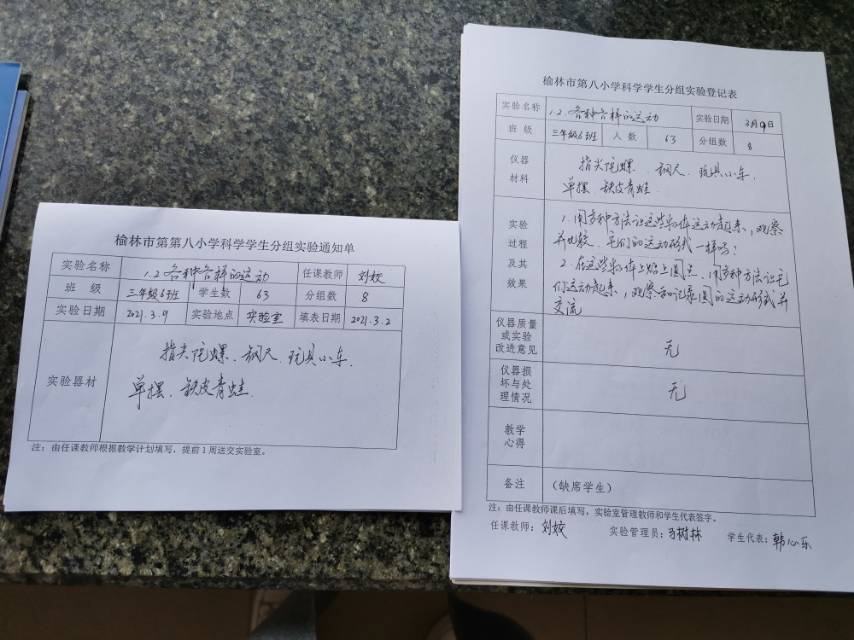 榆林市第第八小学科学学生分组实验通知单
实验名称 1.2各种各样的运动 任课教师 刘姣
班 级 三年级6班 学生数 63 分组数 8
实验日期 2021.3.9 实验地点 实验室 填表日期 2021.3.2
实验器材
指尖陀螺、钢尺、玩具小车、
单摆、铁皮青蛙
注：由任课教师根据教学计划填写，提前1周送交实验室。
榆林市第八小学科学学生分组实验登记表
实验名称 1.2.各种各样的运动 实验日期 3月9日
班 级 三年级6班 人 数 63 分组数 8
仪器
材料
指尖陀螺、钢尺、玩具小车、
单摆 铁皮青蛙
实验
过程
及其
效果
1.用多种方法让这些物体运动起来，观察
并比较，它们的运动形式一样吗？
2.在这些物体上贴上圆点，用多种方法让它
们运动起来，观察和记录圆的运动形式并
交流
仪器质量
或实验
改进意见
无
仪器损
坏与处
理情况
无
教学
心得
备注 （缺席学生）
注：由任课教师课后填写，实验室管理教师和学生代表签字。
任课教师：刘姣 实验管理员：马树林 学生代表：韩心乐